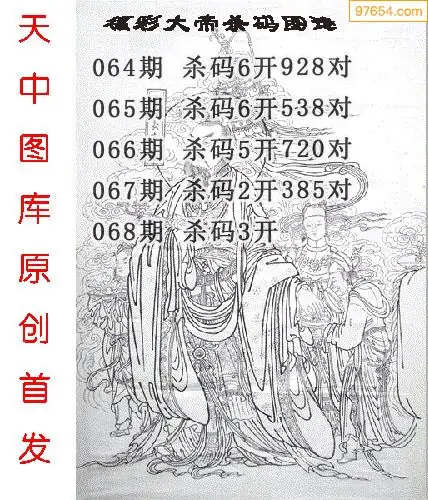 97654.com
福彩大帝杀码图迷
064期 杀码6开928对
065期 杀码6开538对
066期 杀码5开720对
067期 杀码2开385对
068期 杀码3开
天中图库原创首发